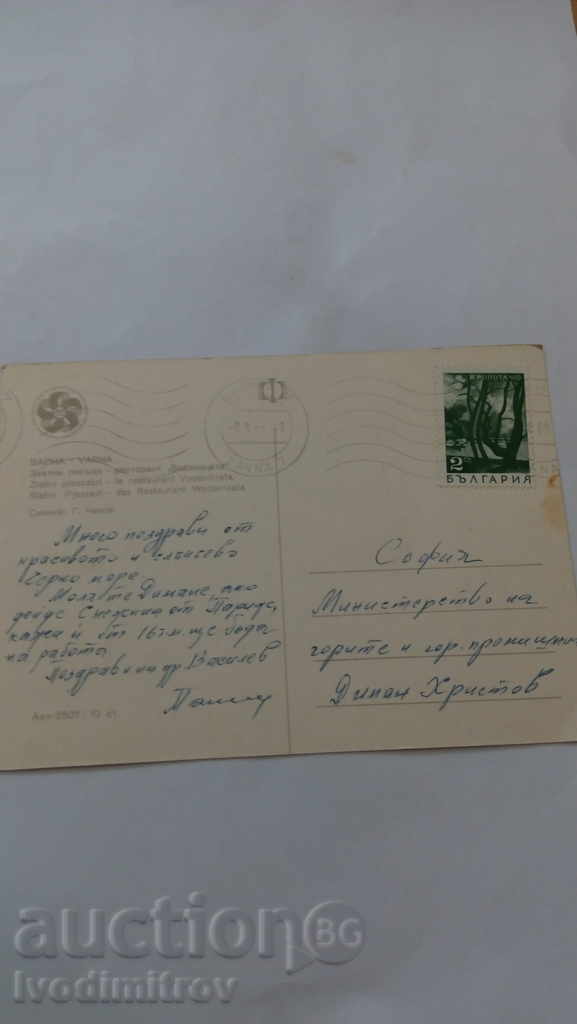 ВАРНА - VARNA
Златни пясъци - ресторант „Воденицата"
Zlatni piassaci - le restaurant Vodenitzata
Slatni Pjassazi - das Restaurant Wodenizata
Снимка: Г.
Много поздрави от
красивото и слънчево
Черно море.
Моля те Димане, ако
дойде Снежинка от
кажи ѝ от 16 т.м. ще бъда
на работа
Поздрави на др. Василев
VARNA
2
БЪЛГАРИЯ
София
Министерство на
горите и гор. промишл
Диман Христов
auction BG
Ivodimitrov